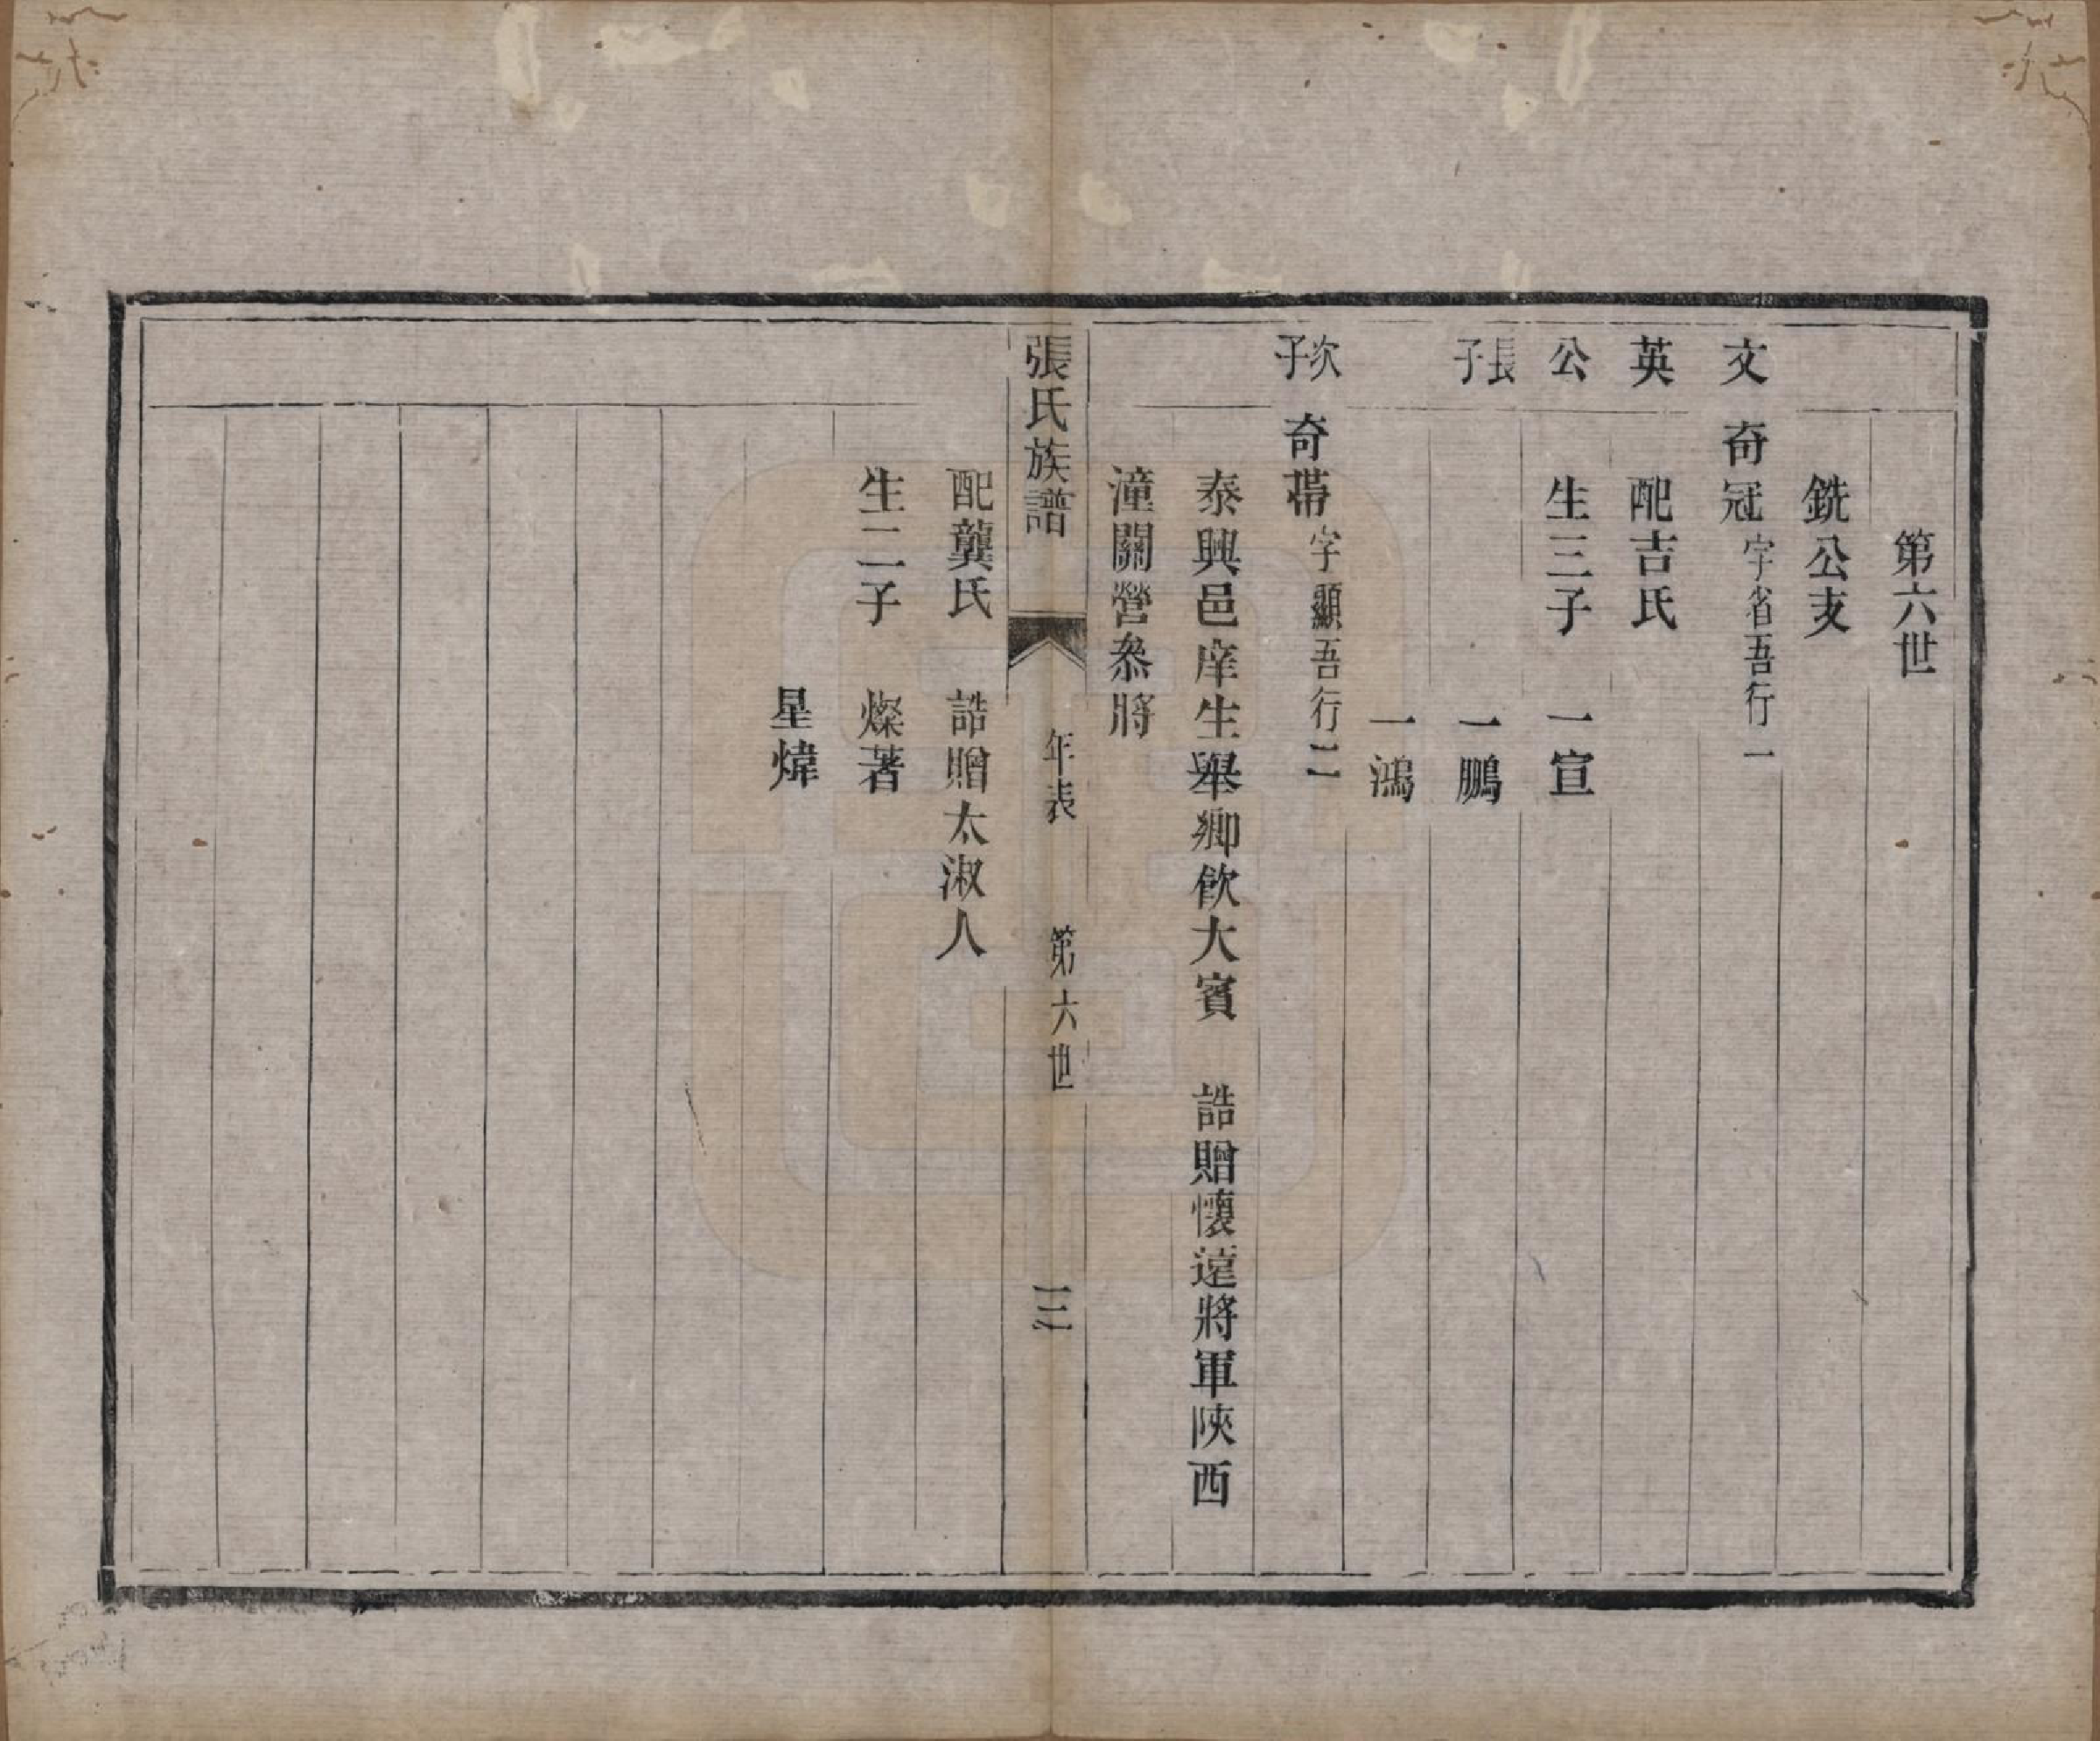 第六世
銑公支
文 奇冠 字省吾行一
英 配吉氏
公 生三子 一宣
長子 一鵬
一鴻
次子 奇蔕 字顯吾行二
泰興邑庠生舉鄉飲大賓 誥贈懷遠將軍陜西
潼關營叅將
張氏族譜 年表 第六世 三
配龔氏 誥贈太淑人
生二子 燦著
星煒